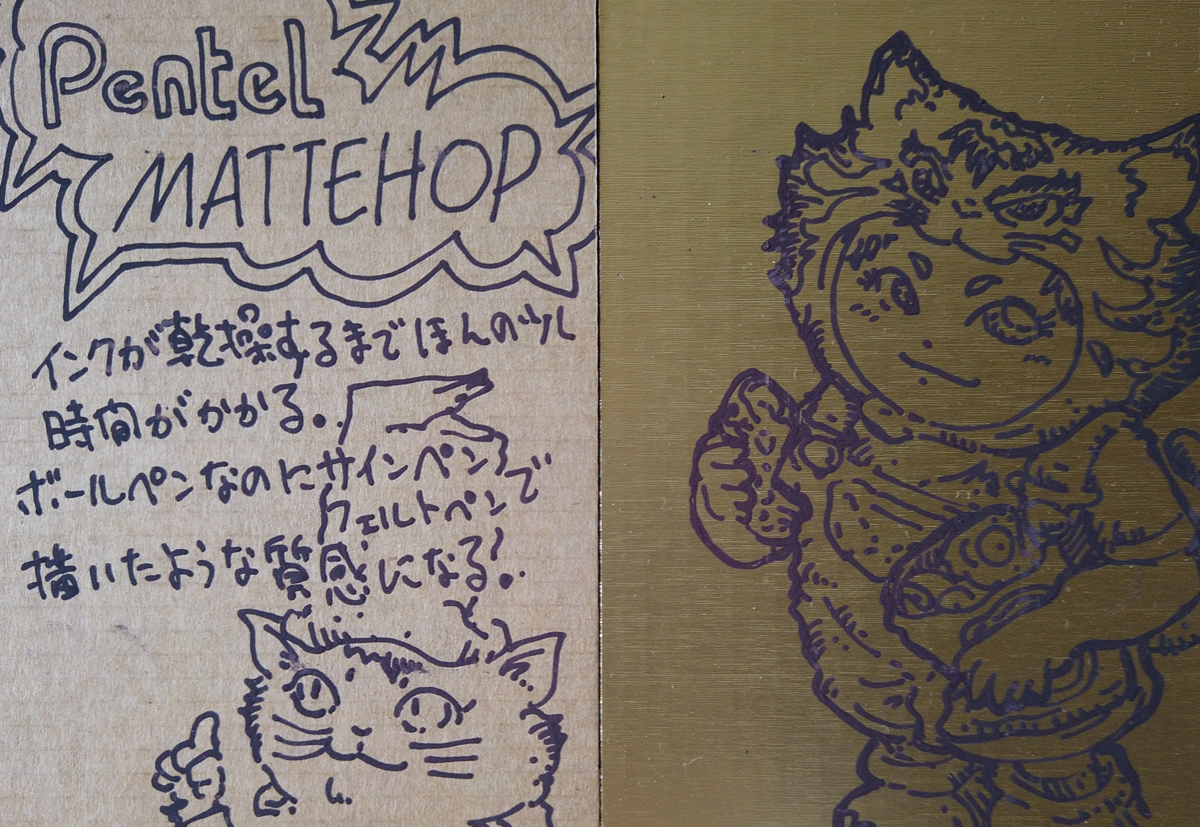 Pentel
MATTEHOP
インクが乾燥するまでほんの少し
時間がかかる。
ボールペンなのにサインペン
フェルトペンで
描いたような質感になる。